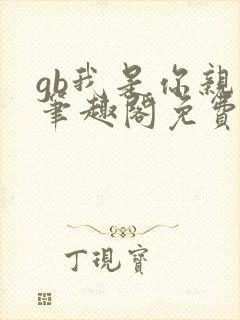 gb我是你親
筆趣閣免費
丁現寶